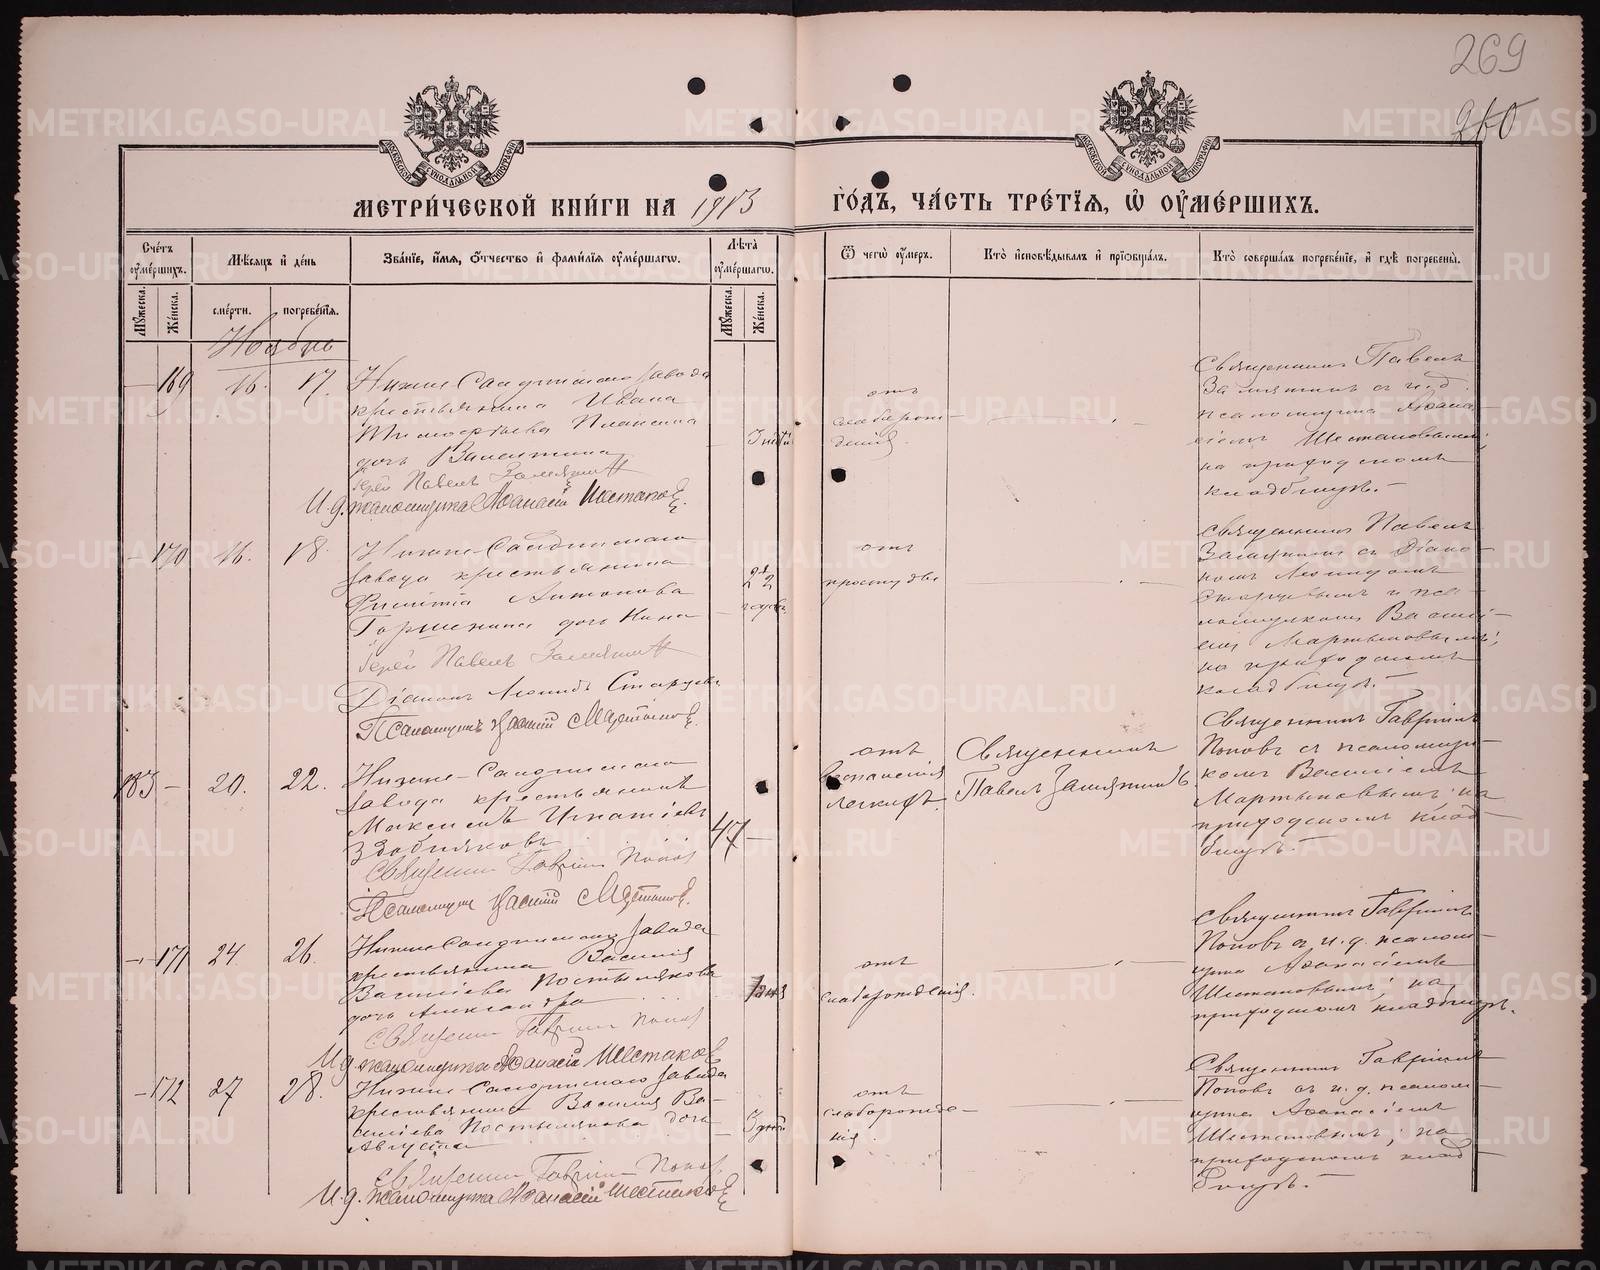 269
260
МЕТРИЧЕСКОЙ КНИГИ НА 1913 ГОДЪ, ЧАСТЬ ТРЕТІЯ, Ѿ ОУМЕРШИХЪ.
Счетъ оумершихъ.
Мѣсяцъ и день
Званіе, имя, отчество и фамилія оумершагѡ.
Лѣта оумершагѡ.
Ѿ чегѡ оумеръ.
Кто исповѣдывалъ и пріобщалъ.
Кто совершалъ погребеніе, и гдѣ погребены.
Мужеска.
Женска.
смерти.
погребенія.
Мужеска.
Женска.
Ноябрь
169 16. 17.
Нижне-Салдинскаго завода
крестьянина Ивана
Тимофѣева
дочь Валентина
Іерей Павелъ Замятинъ
И.д. псаломщика Аѳанасій Шестаковъ.
отъ
слаборож-
денія.
Священникъ Павелъ
Замятинъ съ и. д.
псаломщика Аѳана-
сіемъ Шестаковымъ;
на приходскомъ
кладбищѣ.
170 16. 18.
Нижне-Салдинскаго
завода крестьянина
Филиппа Антонова
Горшенина дочь Нина
Іерей Павелъ Замятинъ
Діаконъ Леонидъ Старцевъ
Псаломщикъ Василій Мартыновъ.
2 1/2
года
отъ
простуды
Священникъ Павелъ
Замятинъ съ Діако-
номъ Леонидомъ
Старцевымъ и пса-
ломщикомъ Васи-
емъ Мартыновымъ;
на приходскомъ
кладбищѣ.
183 20. 22.
Нижне-Салдинскаго
завода крестьянинъ
Максимъ Игнатіевъ
Здобняковъ
Священникъ Гавріилъ Поповъ
Псаломщикъ Василій Мартыновъ.
47
отъ
воспаленія
легкихъ.
Священникъ
Павелъ Замятинъ
Священникъ Гавріилъ
Поповъ съ псаломщи-
комъ Василіемъ
Мартыновымъ; на
приходскомъ клад-
бищѣ.
171 24. 26.
Нижне-Салдинскаго завода
крестьянина Василія
Василіева Постылякова
дочь Александра
Священникъ Гавріилъ Поповъ
И.д. псаломщика Аѳанасій Шестаковъ
отъ
слаборожденія.
Священникъ Гавріилъ
Поповъ съ и. д. псалом-
щика Аѳанасіемъ
Шестаковымъ; на
приходскомъ кладбищѣ.
172 27 28.
Нижне-Салдинскаго завода
крестьянина Василія Ва-
силіева Постылякова дочь
Августа
Священникъ Гавріилъ Поповъ.
И.д. псаломщика Аѳанасій Шестаковъ
отъ
слаборожде-
нія.
Священникъ Гавріилъ
Поповъ съ и. д. псалом-
щика Аѳанасіемъ
Шестаковымъ; на
приходскомъ клад-
бищѣ.
METRIKI.GASO-URAL.RU